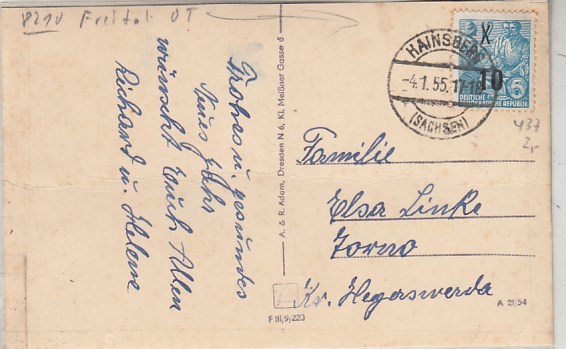 8210 Freital OT
Frohes u. gesundes
Neues Jahr
wünscht Euch Allen
Richard u. Helene
A. & R. Adam, Dresden N 6, Kl. Meißner Gasse 6
HAINSBERG
-4.1.55.17-18
(SACHSEN)
X
10
DEUTSCHE
DEMOKRATISCHE REPUBLIK
5
437
2,-
Familie
Elsa Linke
Torno
Kr. Hoyerswerda
F III/9/223
A 21/54